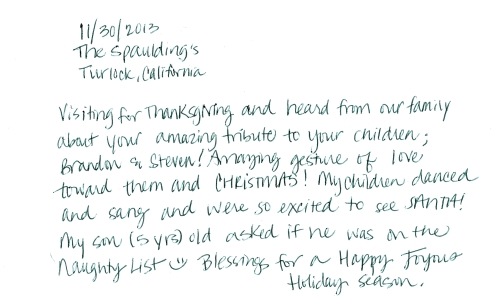 11/30/2013
The Spaulding's
Turlock, California
Visiting for Thanksgiving and heard from our family
about your amazing tribute to your children;
Brandon & Steven! Amazing gesture of love
toward them and CHRISTMAS! My children danced
and sang and were so excited to see SANTA!
My son (5 yrs) old asked if he was on the
Naughty List Blessings for a Happy Joyous
Holiday season.